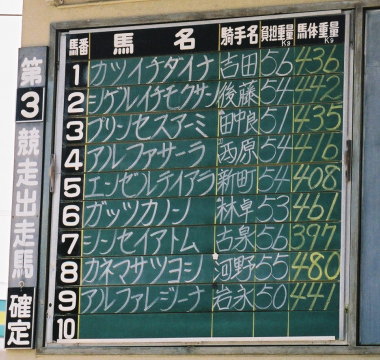 第3競走出走馬確定
馬番 馬名 騎手名 負担重量Kg 馬体重量Kg
1 カツイチダイナ 吉田 56 436
2 シゲルイチモクサン 後藤 54 442
3 プリンセスアーミ 田中良 51 435
4 アルファサーラ 西原 54 416
5 エンゼルテイアラ 新町 54 408
6 ガッツカノン 林卓 53 461
7 シンセイアトム 古泉 56 397
8 カネマサツヨシ 河野 55 480
9 アルファレジーナ 岩永 50 441
10